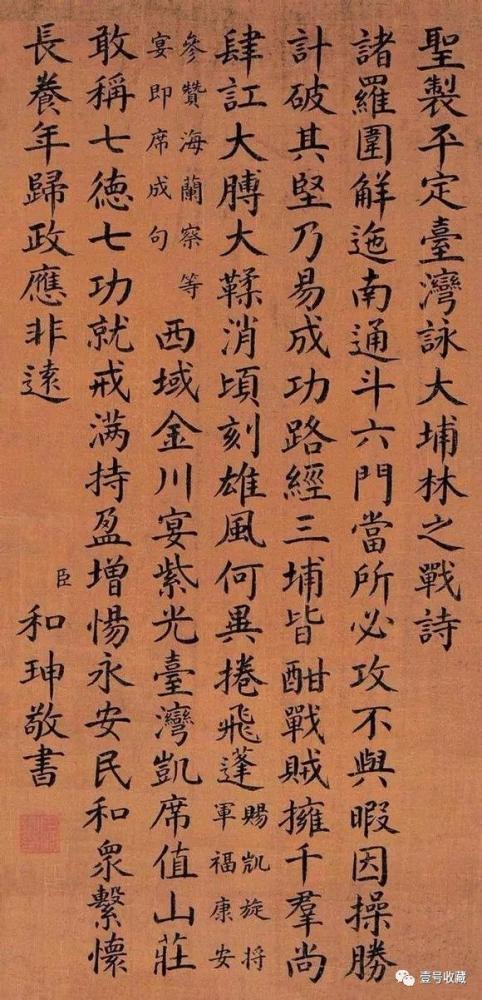 聖製平定臺灣詠大埔林之戰詩
諸羅圍解迤南通斗六門當所必攻不與暇因操勝
計破其堅乃易成功路經三埔皆酣戰賊擁千羣尚
肆訌大膊大鞣消頃刻雄風何異捲飛蓬
賜凱旋将
軍福康安
參贊海蘭察等
宴即席成句
西域金川宴紫光臺灣凱席值山莊
敢稱七德七功就戒满持盈增惕永安民和衆繫懷
長養年歸政應非遠
臣和珅敬書
壹号收藏